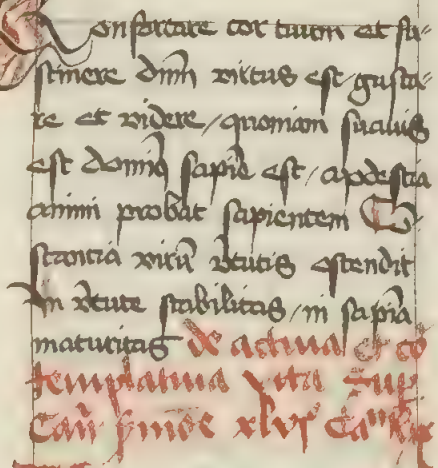 Confortare cor tuum et su-
stinere dnm virtus est gusta-
re et videre / quoniam suauis
est domin9 sapia est / modestia
animi probat sapientem Co-
stantia viru vtutis ostendit
In vtute stabilitas / in sapia
maturitas de actiua et co
templatiua vita Sup
Can